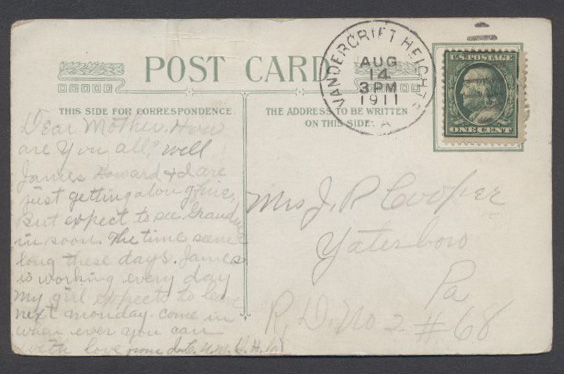 POST CARD
VANDERGRIFT HEIGHTS
AUG
14
3 PM
1911
PA
U.S. POSTAGE
ONE CENT
THIS SIDE FOR CORRESPONDENCE.
THE ADDRESS TO BE WRITTEN
ON THIS SIDE.
Dear Mother. How
are you all, well
James Howard & I are
just getting along fine,
But expect to see Grand
in soon. The time seems
long these days. James
is working every day
My girl expects to leave
next monday. come in
when ever you can
with love from
Mrs J. P. Cooper
Yatesboro
Pa
R. D. No 2 # 68